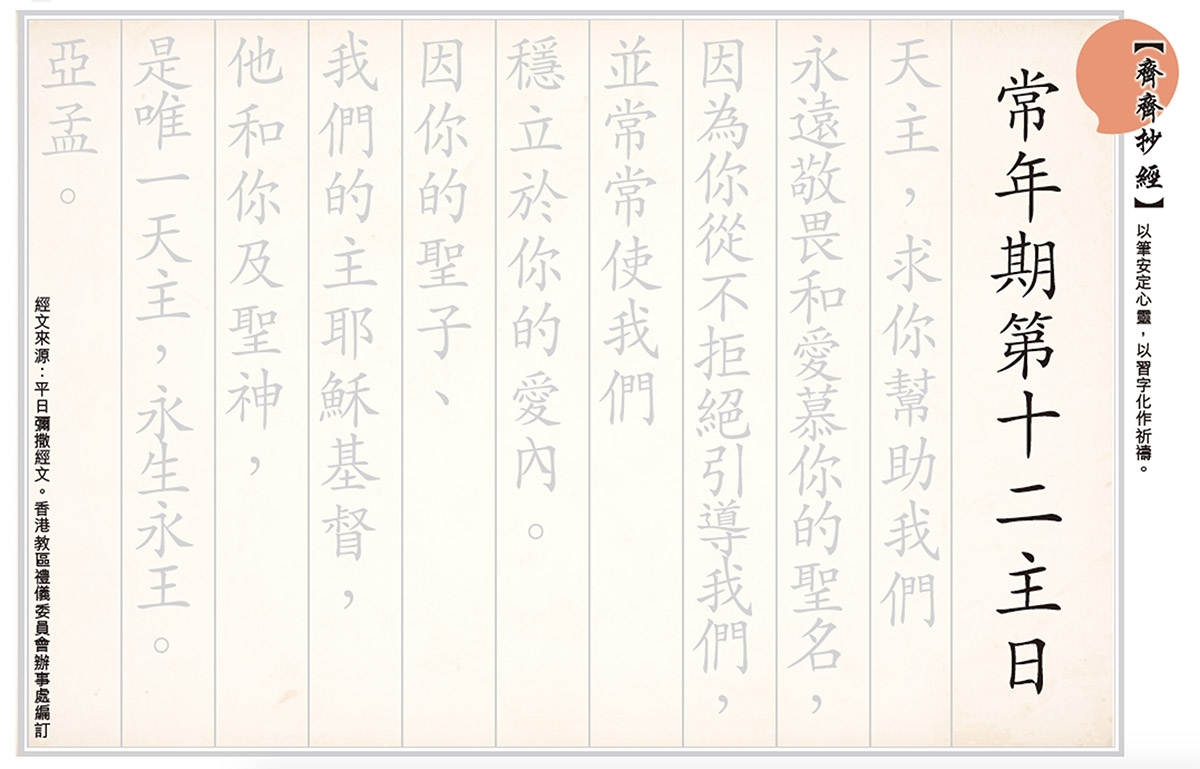 【齊齊抄經】以筆安定心靈，以習字化作祈禱。
常年期第十二主日
天主，求你幫助我們
永遠敬畏和愛慕你的聖名，
因為你從不拒絕引導我們，
並常常使我們
穩立於你的愛內。
因你的聖子、
我們的主耶穌基督，
他和你及聖神，
是唯一天主，永生永王。
亞孟。
經文來源：平日彌撒經文。香港教區禮儀委員會辦事處編訂